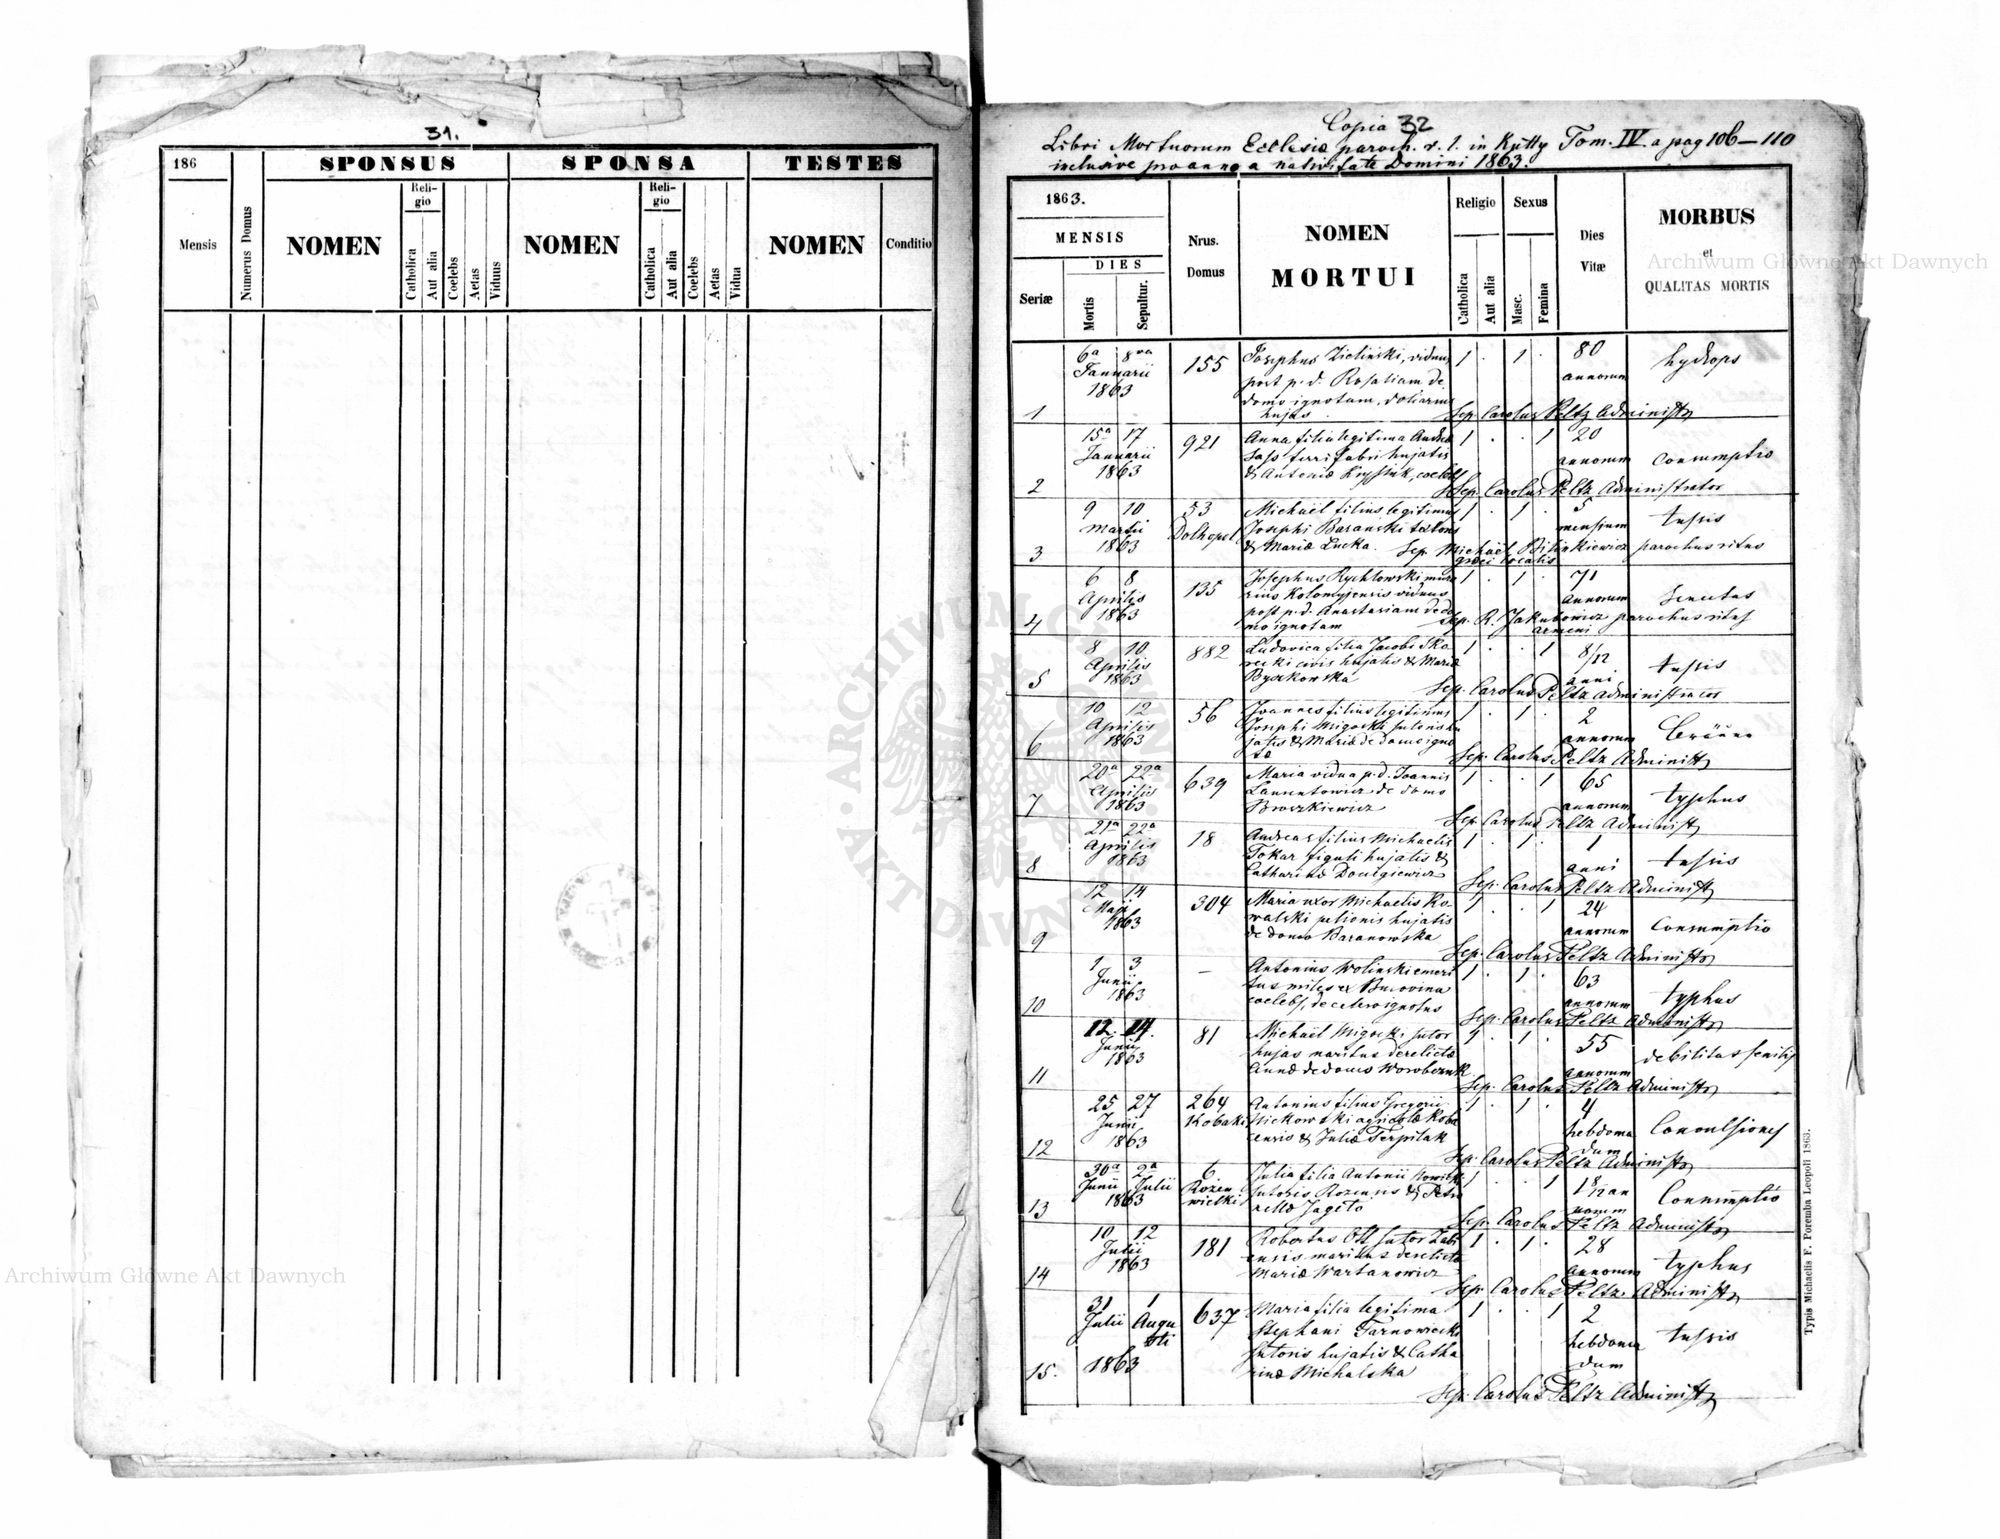 31.
186
SPONSUS
SPONSA
TESTES
Mensis
Numerus Domus
NOMEN
Reli-
gio
Catholica
Aut alia
Coelebs
Aetas
Viduus
NOMEN
Reli-
gio
Catholica
Aut alia
Coelebs
Aetas
Vidua
NOMEN
Conditio
Copia 32
Libri Mortuorum Ecclesiæ paroch. r. l. in Kutty Tom. IV. a pag 106–110
inclusive pro anno a nativitate Domini 1863.
1863.
MENSIS
DIES
Seriæ
Mortis
Sepultur.
Nrus.
Domus
NOMEN
MORTUI
Religio
Catholica
Aut alia
Sexus
Masc.
Femina
Dies
Vitæ
MORBUS
et
QUALITAS MORTIS
6a 8va
Januarii
1863
1
155
Josephus Zieliński, viduus
post p. d. Rosaliam de
domo ignotam, doliarius
hujas
1 . 1 .
80
annorum
hydrops
Sep. Carolus Peltz Administr
15a 17
Januarii
1863
2
921
Anna filia legitima Andreæ
Sass ferri fabri hujatis
1 . . 1
20
annorum
Consumptio
Sep. Carolus Peltz Administrator
9 10
Martii
1863
3
53
Dolhopol
Michaël filius legitimus
Josephi Baranski
& Mariæ Lucka.
1 . 1 .
5
mensium
tussis
Sep. Michaël parochus ritus
græci
6 8
Aprilis
1863
4
135
Josephus Rychlowski mura
rius Kolomyjensis viduus
post p. d. Anastasiam de do
mo ignotam
1 . 1 .
71
annorum
Senectus
Sep. R. Jakubowicz parochus ritus
armeni
8 10
Aprilis
1863
5
882
Ludovica filia Jacobi Sko
recki civis hujatis & Mariæ
Byszkowska
1 . . 1
8/12
anni
tussis
Sep. Carolus Peltz Administrator
10 12
Aprilis
1863
6
56
Joannes filius legitimus
Josephi Migocki sutoris hu
jatis & Mariæ de domo igno
tæ
1 . 1 .
2
annorum
Sep. Carolus Peltz Administr
20a 22a
Aprilis
1863
7
639
Maria vidua p. d. Joannis
de domo
Broszkiewicz
1 . . 1
65
annorum
typhus
Sep. Carolus Peltz Administr
21a 22a
Aprilis
1863
8
18
Andreas filius Michaelis
Tokar figuli hujatis &
Catharinæ
1 . 1 .
1
anni
tussis
Sep. Carolus Peltz Administr
12 14
Maji
1863
9
304
Maria uxor Michaelis Ko-
walski pelionis hujatis
de domo Baranowska
1 . . 1
24
annorum
Consumptio
Sep. Carolus Peltz Administr
1 3
Junii
1863
10
—
Antonius Wolinski emeri
tus miles ex Bucovina
coelebs, de cetero ignotus
1 . 1 .
63
annorum
typhus
Sep. Carolus Peltz Administr
12. 14.
Junii
1863
11
81
Michaël Migocki sutor
hujas maritus derelictæ
Annæ de domo
1 . 1 .
55
annorum
debilitas senilis
Sep. Carolus Peltz Administr
25 27
Junii
1863
12
264
Kobaki
Antonius filius Gregorii
agricolæ Koba
censis & Juliæ Terpilak
1 . 1 .
4
hebdoma
dum
Convulsiones
Sep. Carolus Peltz Administr
30a 2a
Junii Julii
1863
13
6
Rozen
wielki
Julia filia Antonii
sutoris Rozensis & Petro
nellæ Jagēto
1 . . 1
1 8/12 an
norum
Consumptio
Sep. Carolus Peltz Administr
10 12
Julii
1863
14
181
Robertus Ott sutor Zabi
ensis maritus derelictæ
Mariæ Wartanowicz
1 . 1 .
28
annorum
typhus
Sep. Carolus Peltz Administr
31 1
Julii Augu
sti
1863
15.
637
Maria filia legitima
Stephani Tarnowiecki
sutoris hujatis & Catha
rinæ Michalska
1 . . 1
2
hebdoma
dum
tussis
Sep. Carolus Peltz Administr
Typis Michaelis F. Poremba Leopoli 1863.
Archiwum Główne Akt Dawnych
Archiwum Główne Akt Dawnych
ARCHIWUM GŁÓWNE AKT DAWNYCH